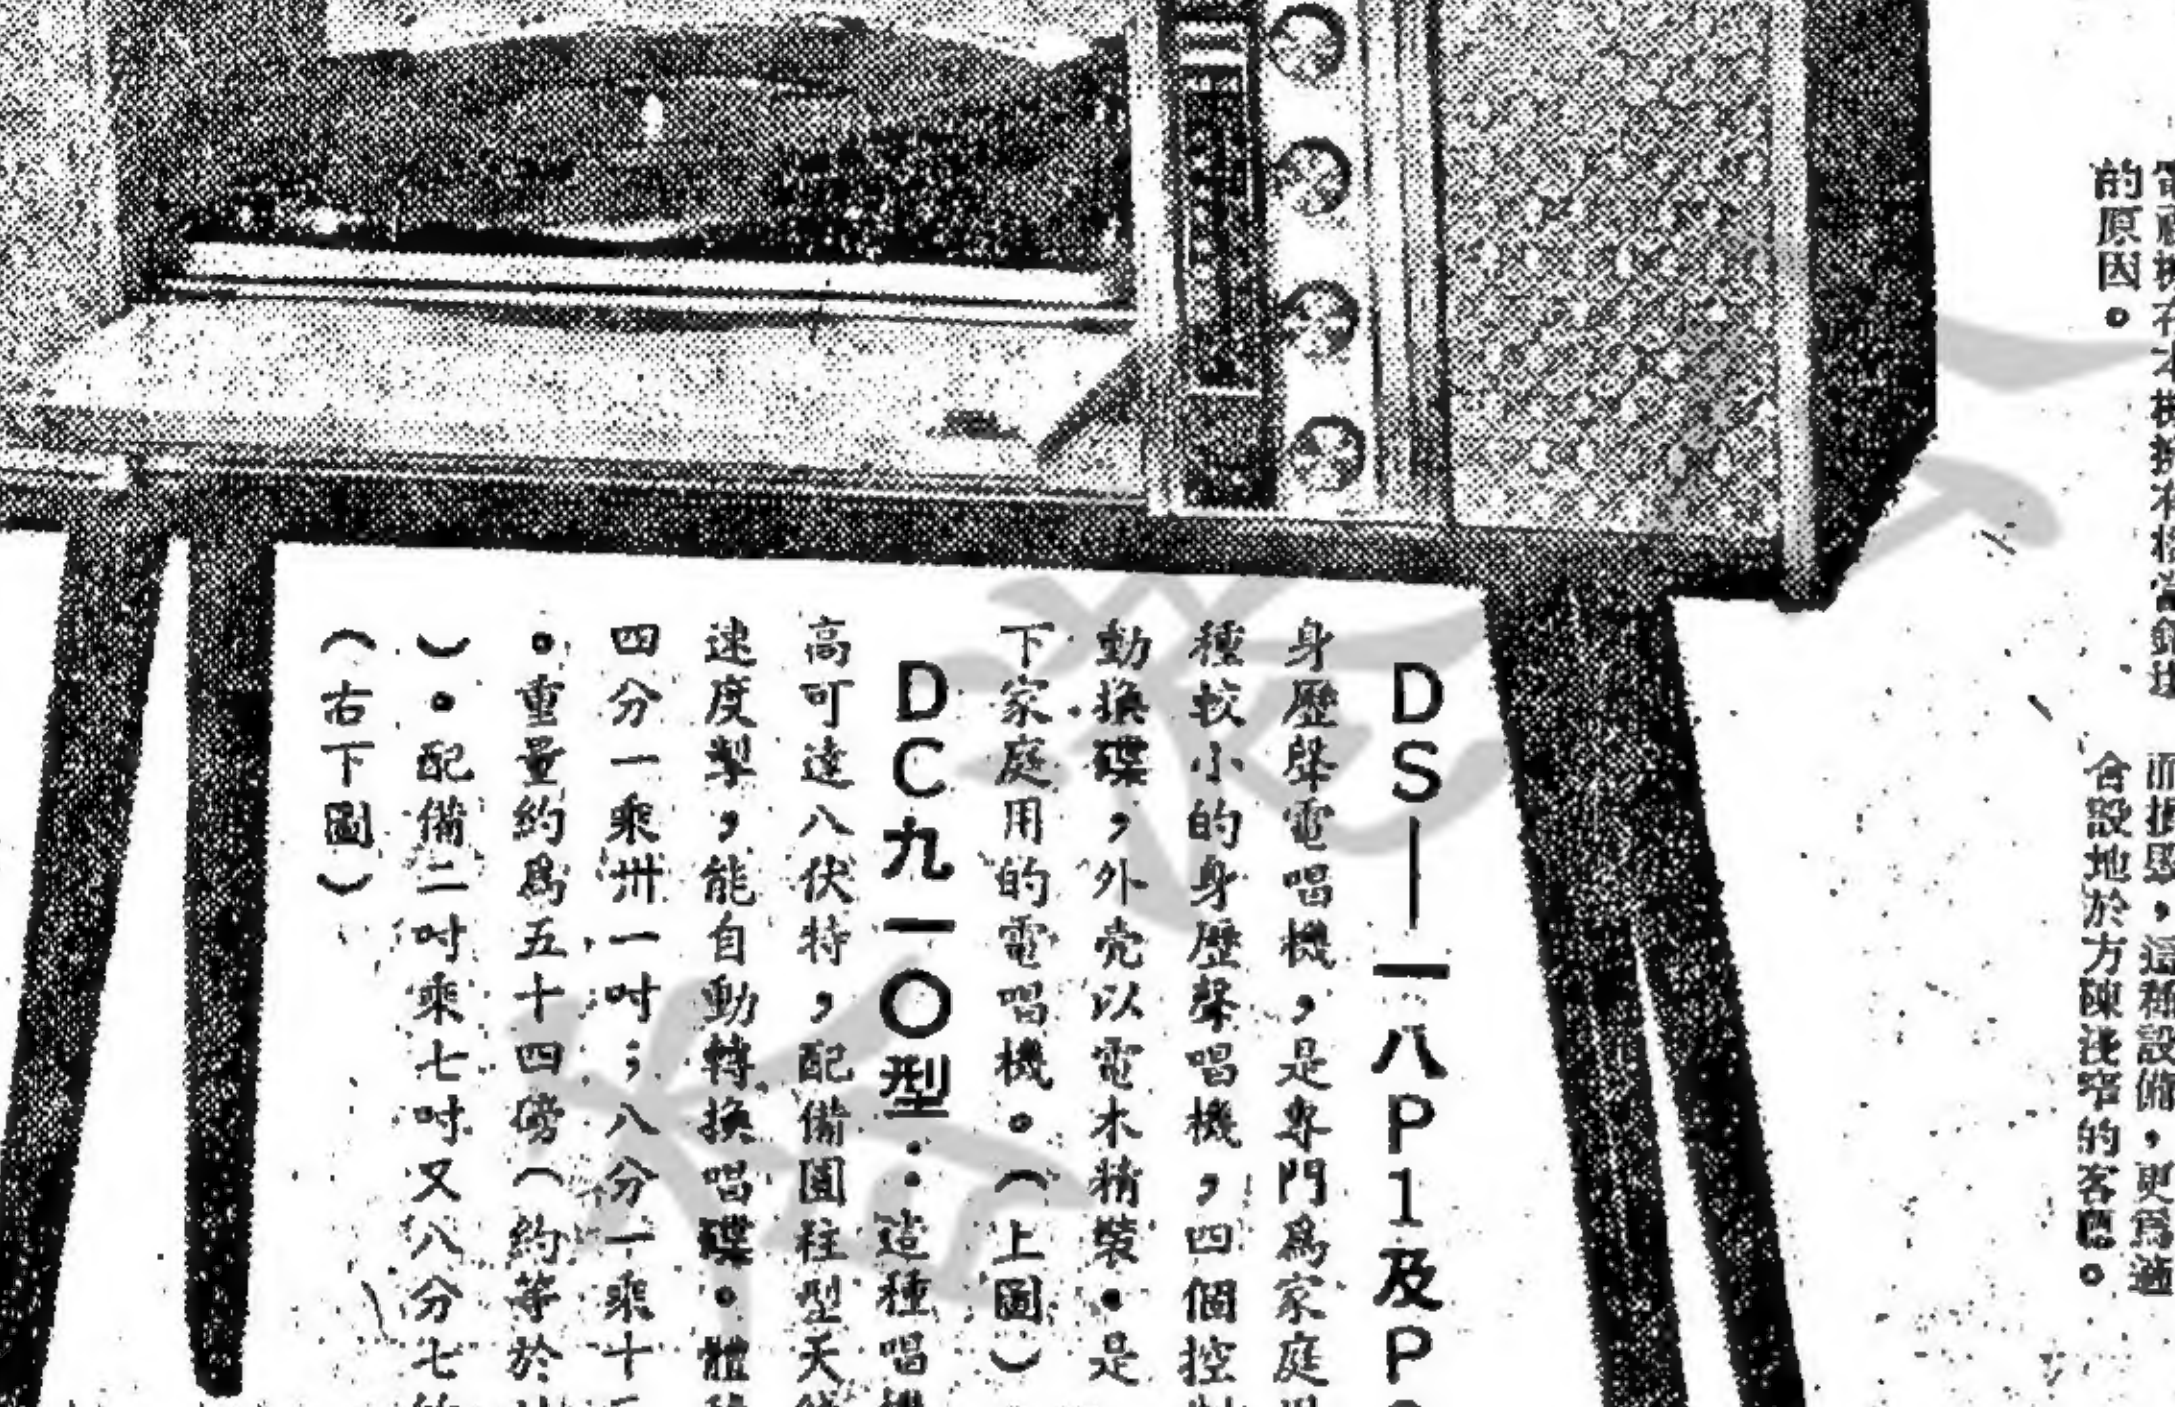 的原因。
而損毀，這種設備，更為適
合設地於方陳淺窄的客廳。
DS—一八P1及P
身歷聲電唱機，是專門為家庭
種較小的身歷聲唱機，四個控制
動換碟，外壳以電木精裝。是
下家庭用的電唱機。（上圖）
DC九一〇型：這種唱機
高可達八伏特，配備圓柱型天線
速度掣，能自動轉換唱碟。體積
四分一乘卅一吋；八分一乘十
。重量約為五十四磅（約等於
）。配備二吋乘七吋又八分七
（右下圖）